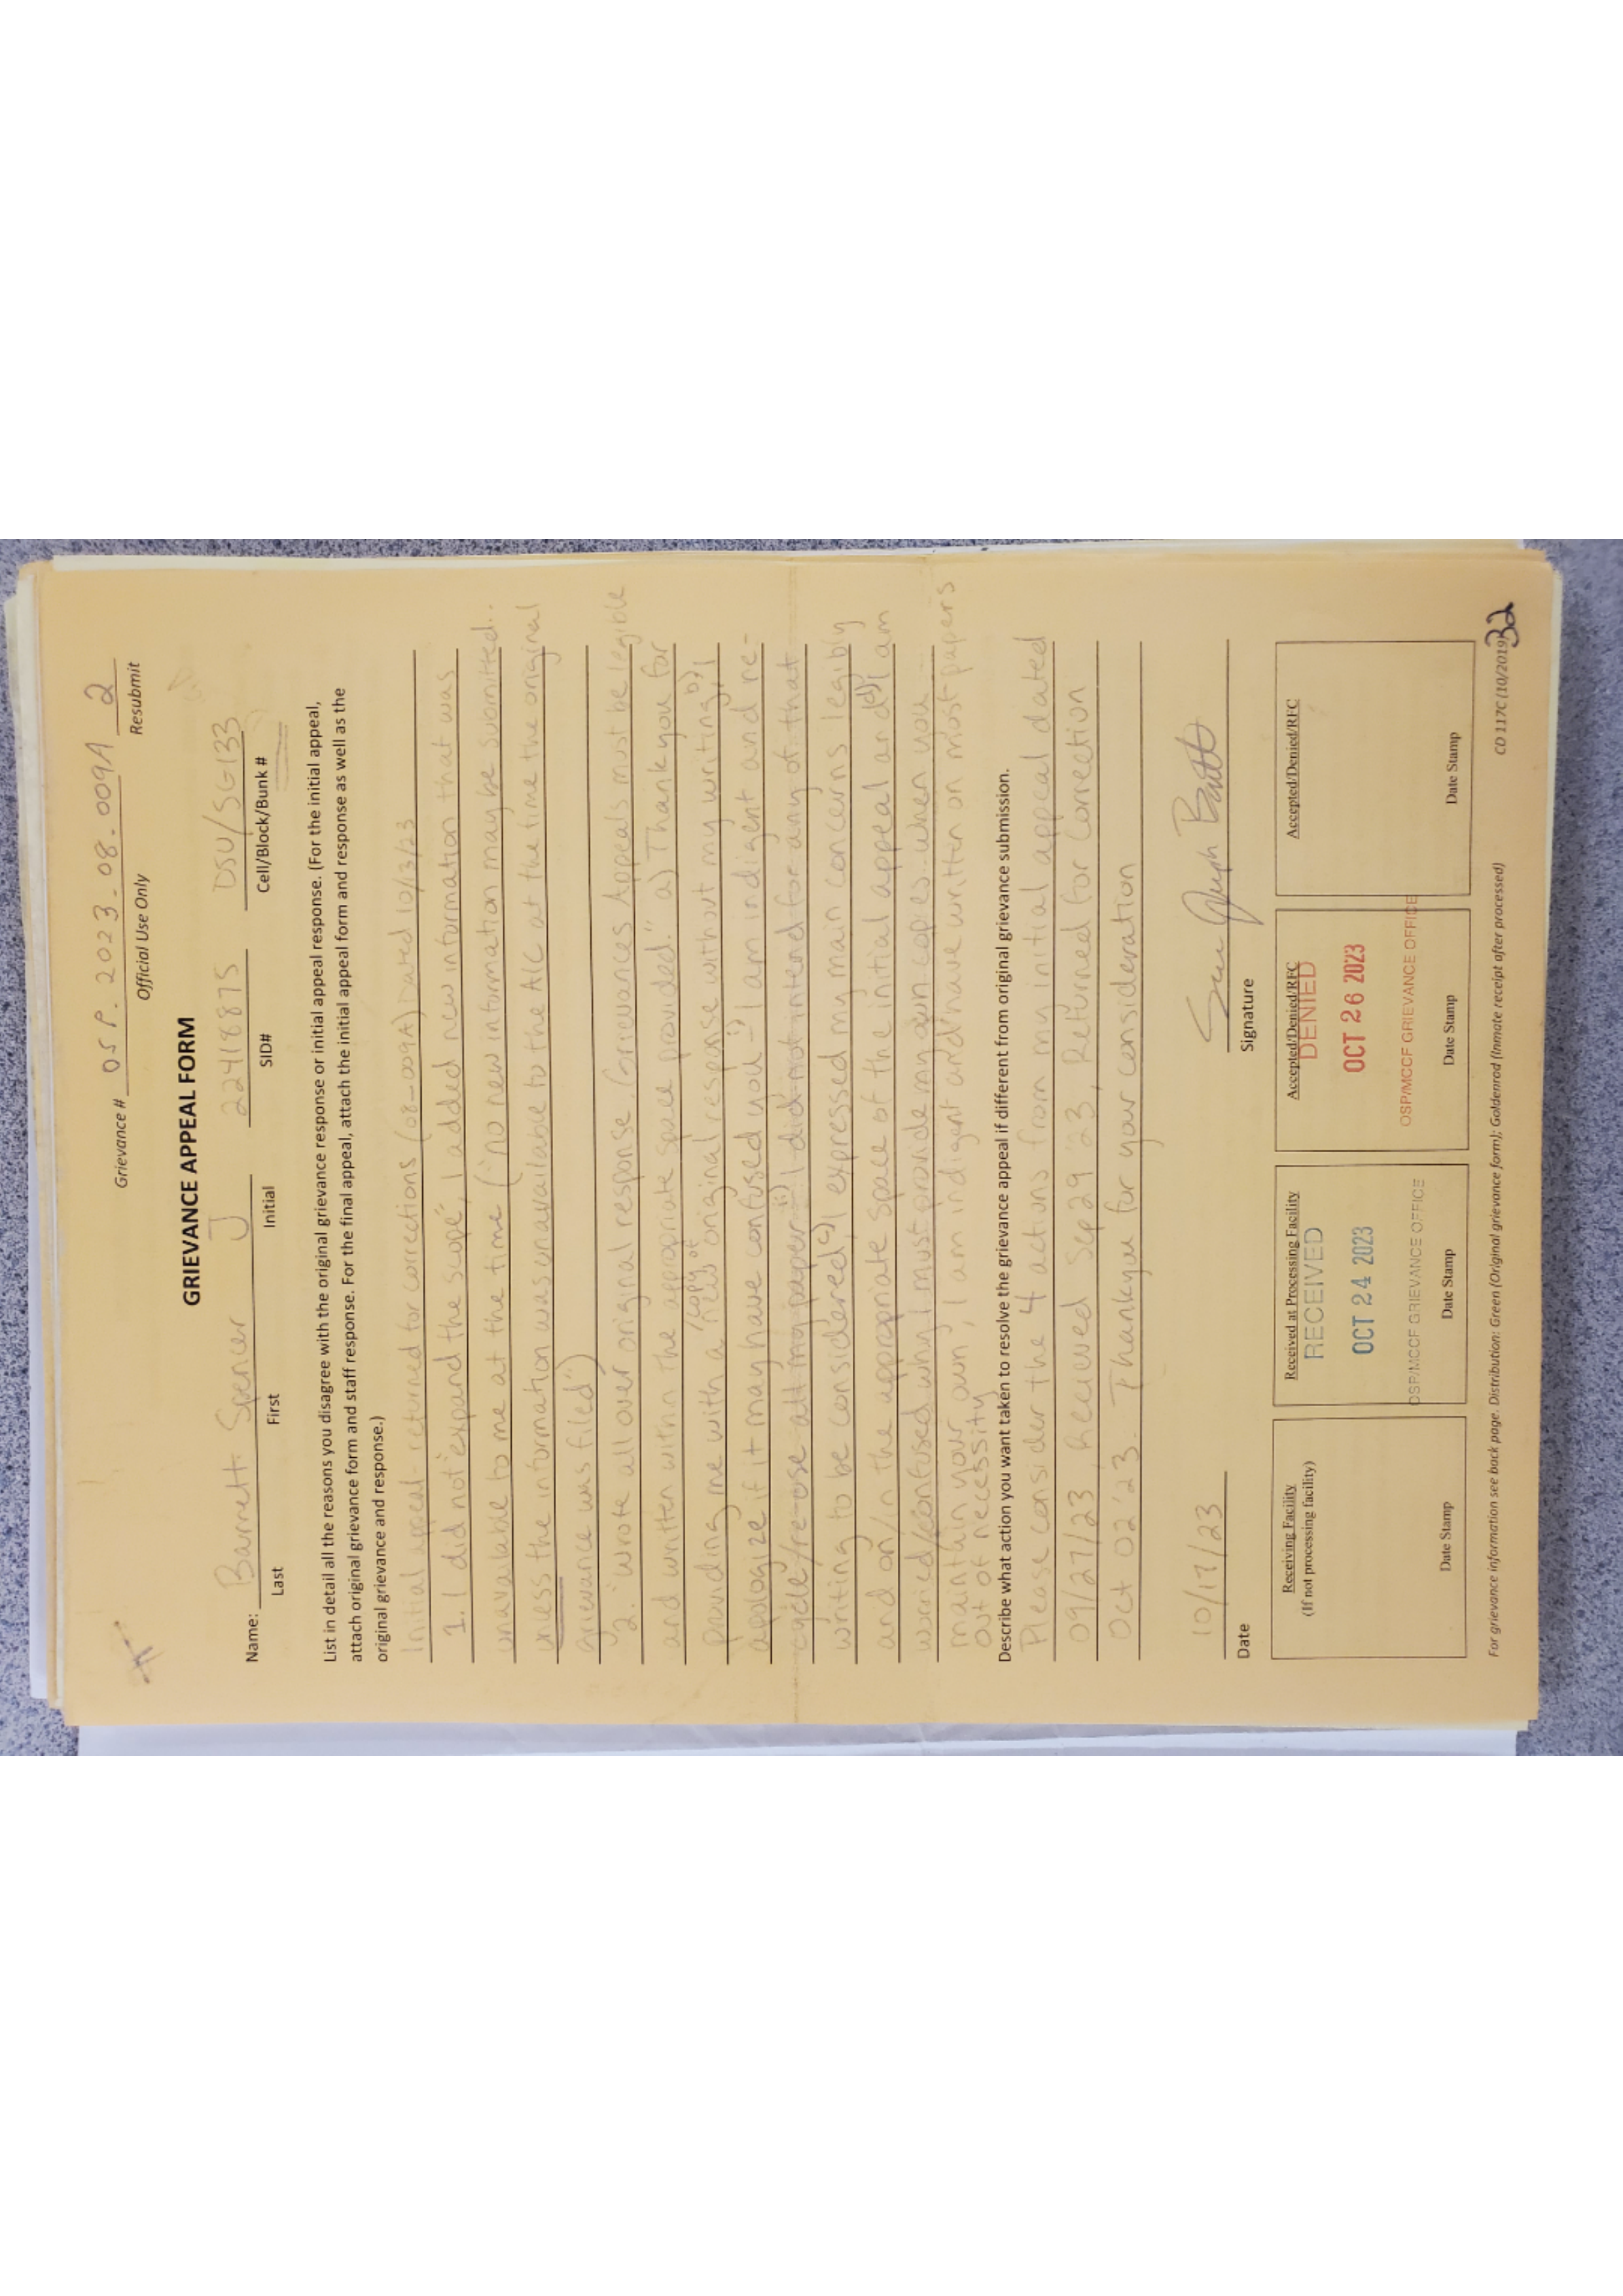 Grievance # OSP. 2023-08-009A 2
Official Use Only Resubmit
GRIEVANCE APPEAL FORM
Name: Barrett Spencer J 22418875 DSU/SG133
Last First Initial SID# Cell/Block/Bunk #
List in detail all the reasons you disagree with the original grievance response or initial appeal response. (For the initial appeal,
attach original grievance form and staff response. For the final appeal, attach the initial appeal form and response as well as the
original grievance and response.)
Initial appeal - returned for corrections (08-009A) Dated 10/3/23
1. I did not "expand the scope", I added new information that was
unavailable to me at the time ("no new information may be submitted...
unless the information was unavailable to the AIC at the time the original
grievance was filed")
2. "wrote all over original response. Grievances Appeals must be legible
and written within the appropriate space provided." a) Thank you for
providing me with a new /copy of original response without my writing, b) I
apologize if it may have confused you - i) I am indigent and re-
cycle/re-use all my paper ii) I did not intend for any of that
writing to be considered, c) I expressed my main concerns legibly
and on/in the appropriate space of the initial appeal and d) I am
worried/confused why I must provide my own copies... when you
maintain your own, I am indigent and have written on most papers
out of necessity
Describe what action you want taken to resolve the grievance appeal if different from original grievance submission.
Please consider the 4 actions from my initial appeal dated
09/27/23 Received Sep 29 '23, Returned for Correction
Oct 02 '23. Thankyou for your consideration
10/17/23
Date Signature
Receiving Facility
(If not processing facility)
Date Stamp
Received at Processing Facility
RECEIVED
OCT 24 2023
OSP/MCCF GRIEVANCE OFFICE
Date Stamp
Accepted/Denied/RFC
DENIED
OCT 26 2023
OSP/MCCF GRIEVANCE OFFICE
Date Stamp
Accepted/Denied/RFC
Date Stamp
For grievance information see back page. Distribution: Green (Original grievance form); Goldenrod (Inmate receipt after processed) CD 117C (10/2019)
32